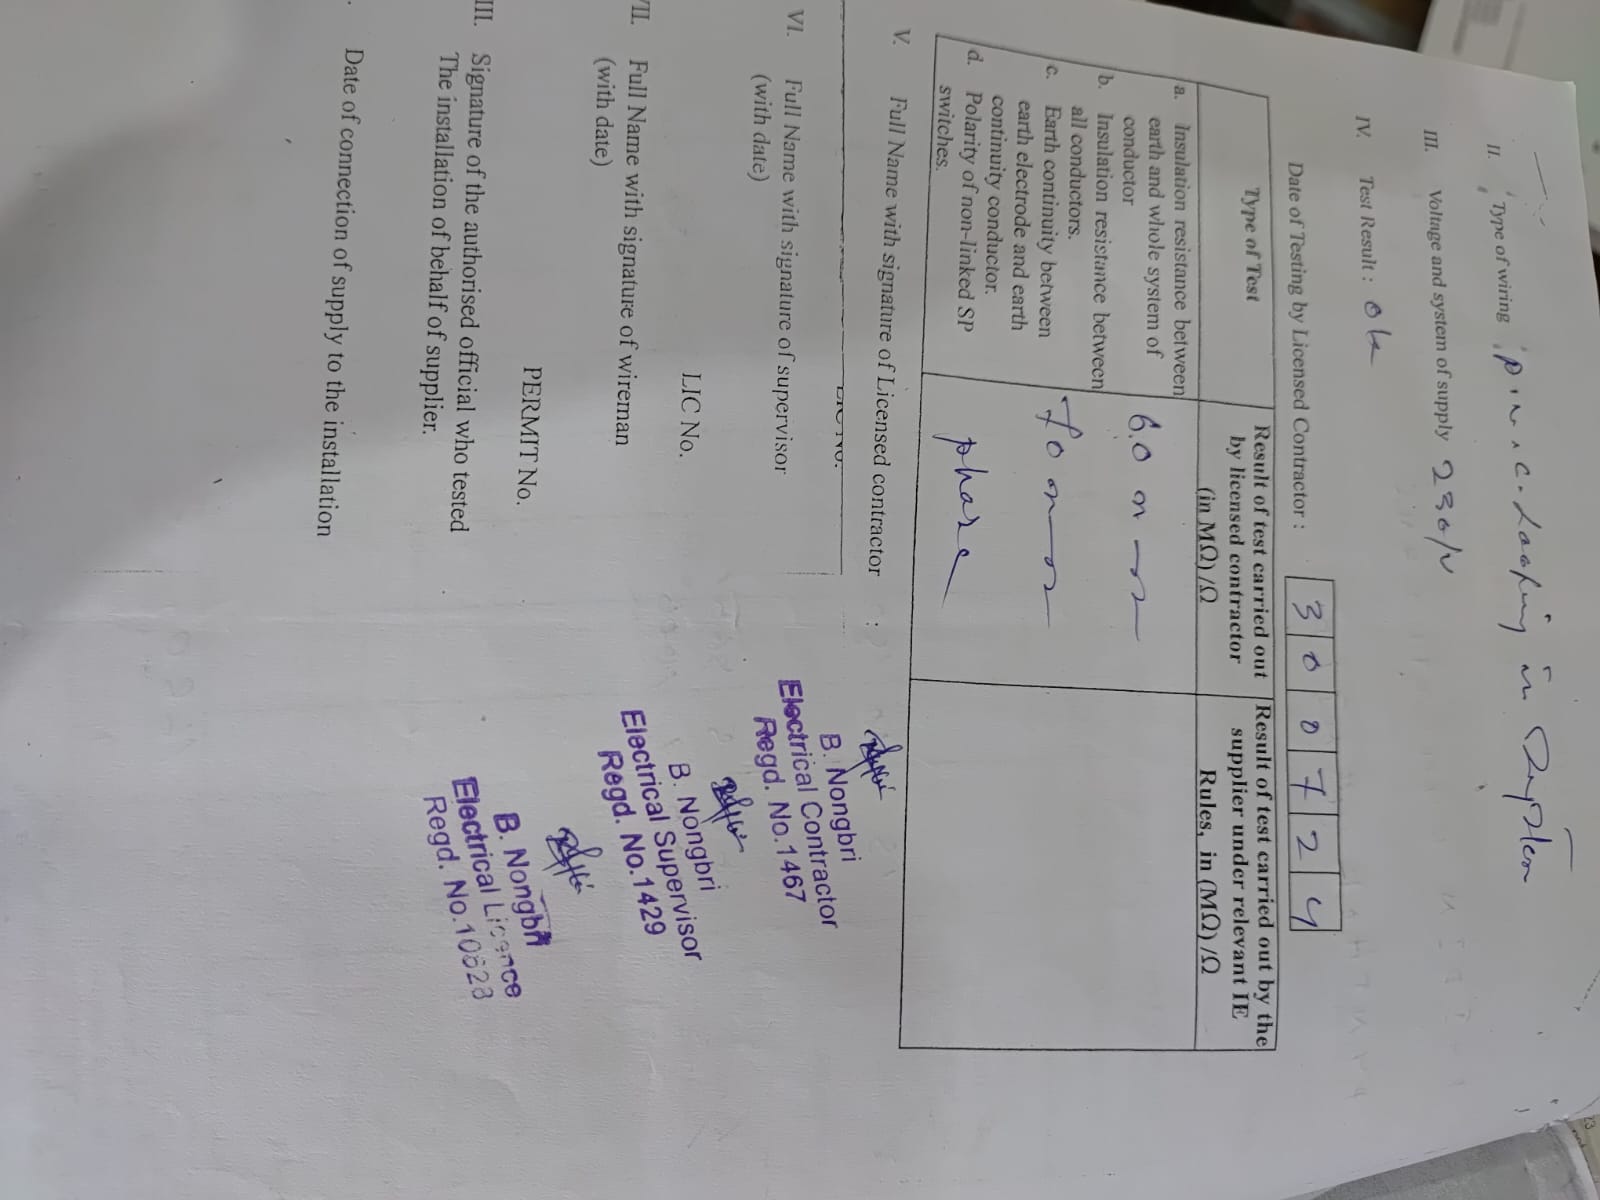 II. Type of wiring : P.V.C. Looping in System
III. Voltage and system of supply 230/V
IV. Test Result : Ok
Date of Testing by Licensed Contractor : 3 0 0 7 2 4
Type of Test
Result of test carried out by licensed contractor (in MΩ)/Ω
Result of test carried out by the supplier under relevant IE Rules, in (MΩ)/Ω
a. Insulation resistance between
earth and whole system of
conductor
b. Insulation resistance between
all conductors.
c. Earth continuity between
earth electrode and earth
continuity conductor.
d. Polarity of non-linked SP
switches.
60
70
phase
V. Full Name with signature of Licensed contractor :
LIC No.
B. Nongbri
Electrical Contractor
Regd. No.1467
VI. Full Name with signature of supervisor
(with date)
LIC No.
B. Nongbri
Electrical Supervisor
Regd. No.1429
VII. Full Name with signature of wireman
(with date)
PERMIT No.
B. Nongbri
Electrical Licence
Regd. No.
III. Signature of the authorised official who tested
The installation of behalf of supplier.
Date of connection of supply to the installation